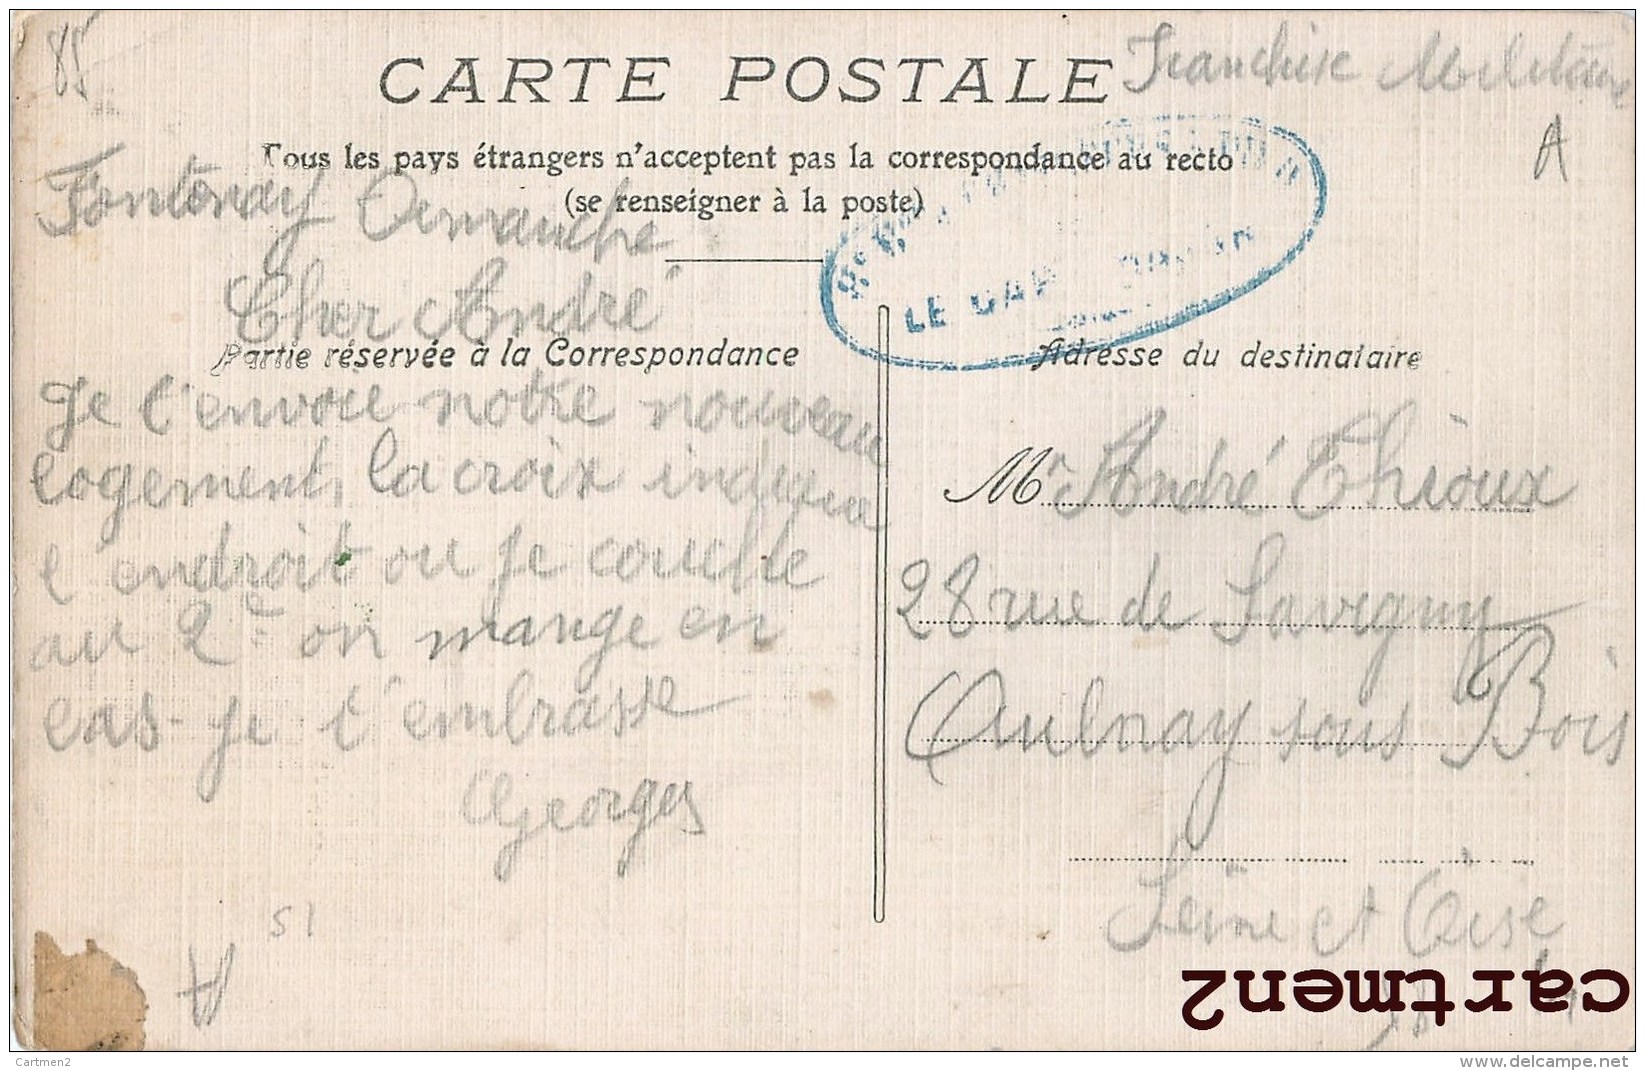 85
CARTE POSTALE
Franchise Militaire
A
Tous les pays étrangers n'acceptent pas la correspondance au recto
(se renseigner à la poste)
Fontenay Dimanche
Cher André
LE
Partie réservée à la Correspondance
Je t'envoie notre nouveau
logement, la croix indique
l endroit ou je couche
au 2e on mange en
cas je t'embrasse
Georges
51
A
Adresse du destinataire
Mr André Thioux
28 rue de Savigny
Aulnay sous Bois
Seine et Oise
cartmen2
Cartmen2
www.delcampe.net